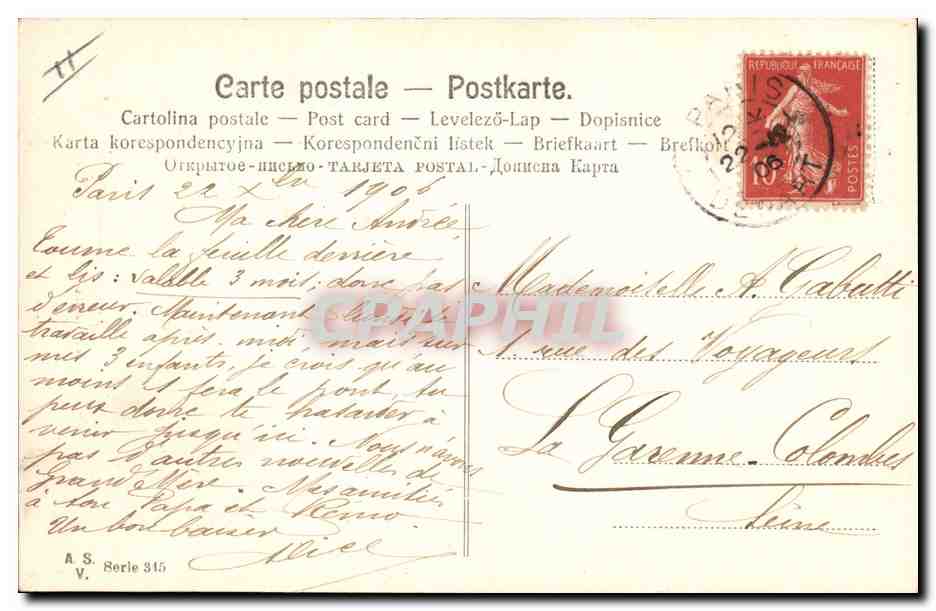 11
Carte postale — Postkarte.
Cartolina postale — Post card — Levelező-Lap — Dopisnice
Karta korespondencyjna — Korespondenční lístek — Briefkaart — Brefkort
Открытое-письмо-TARJETA POSTAL-Дописна Карта
REPUBLIQUE FRANÇAISE
POSTES
10
PARIS
22
06
DEPART
Paris 22 Xbre 1906
Ma chère Andrée
Tourne la feuille derrière
et lis: Valable 3 mois; donc pas
d'erreur. Maintenant
travaille après midi mais sur
mes 3 enfants, je crois qu'au
moins 1 fera le pont, tu
peux donc te hasarder à
venir jusqu'ici. Nous n'avons
pas d'autres nouvelles de
Grand Mère. Mes amitiés
à ton Papa et Remo
Un bon baiser
Alice
Mademoiselle A. Cabutti
1. rue des Voyageurs
La Garenne-Colombes
Seine
CPAPHIL
A. S. V. Serie 315